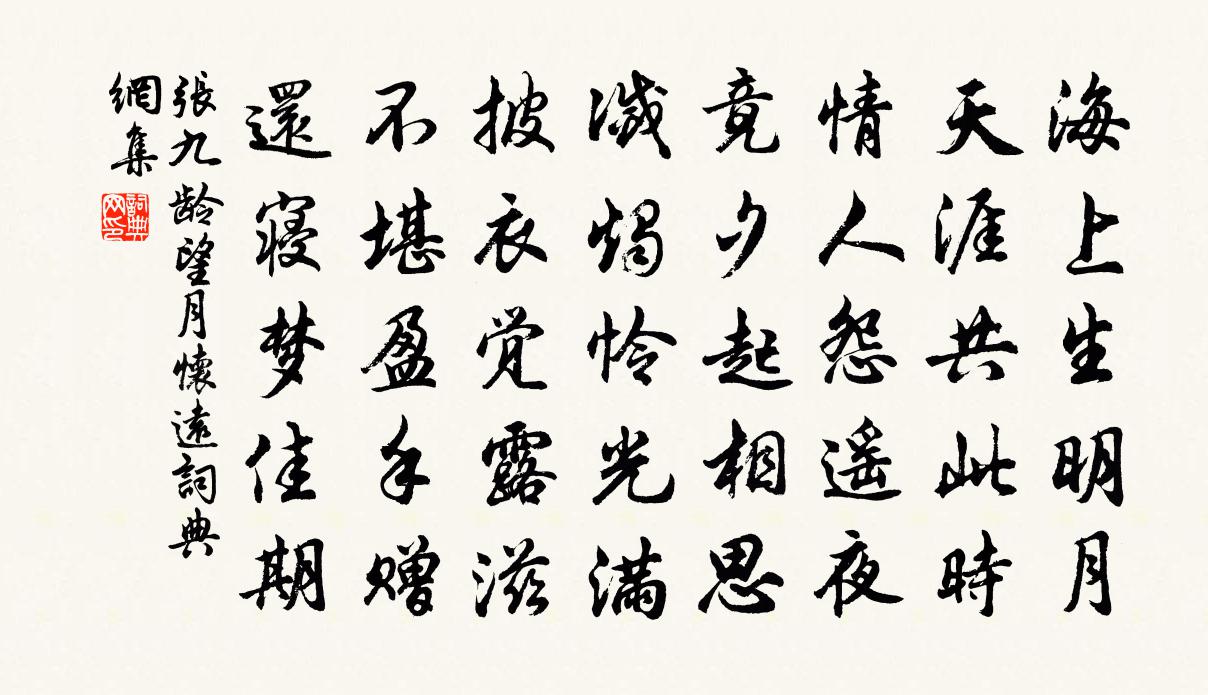 海上生明月
天涯共此時
情人怨遥夜
竟夕起相思
滅燭怜光满
披衣觉露滋
不堪盈手赠
還寝梦佳期
張九齡望月懷遠詞典
網集
詞典
网印